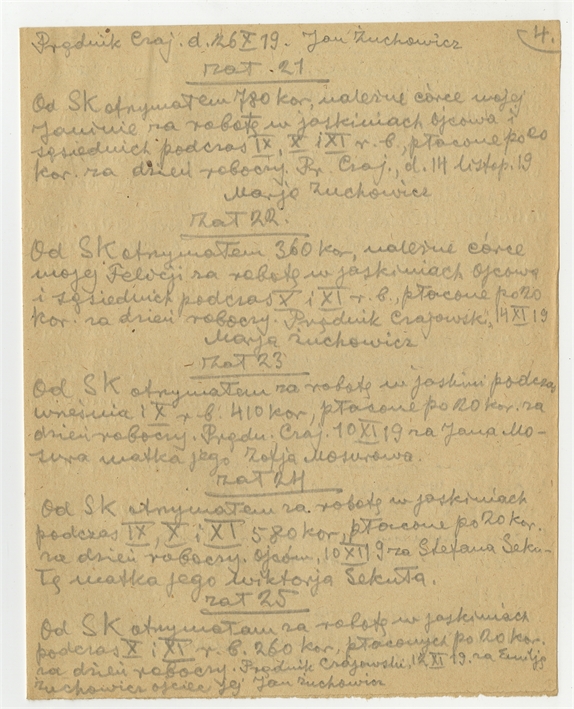 Prądnik Czaj. d. 26 X 19. Jan Żuchowicz
4.
Zał. 21
Od SK otrzymałem 780 kor, należne córce mojej
Janinie za robotę w jaskiniach Ojcowa i
sąsiednich podczas IX, X i XI r. b., płacone po 20
kor. za dzień roboczy. Pr. Czaj., d. 14 listop. 19
Marja Żuchowicz
Zał 22.
Od SK otrzymałem 360 kor, należne córce
mojej Felicji za robotę w jaskiniach Ojcowa
i sąsiednich podczas X i XI r. b., płacone po 20
kor. za dzień roboczy. Prądnik Czajowski, 14 XI 19
Marja Żuchowicz
Zał 23
Od SK otrzymałem za robotę w jaskini podczas
września i X r. b. 410 kor, płacone po 20 kor. za
dzień roboczy. Prądn. Czaj. 10 XI 19 za Jana Mo-
sura matka jego Zofja Mosurowa.
Zał 24
Od SK otrzymałam za robotę w jaskiniach
podczas IX, X i XI 580 kor, płacone po 20 kor.
za dzień roboczy. Ojców, 10 XI 19 za Stefana Seku-
łę matka jego Wiktorja Sekuła.
Zał 25
Od SK otrzymałam za robotę w jaskiniach
podczas X i XI r. b. 260 kor. płaconych po 20 kor.
za dzień roboczy. Prądnik Czajowski, 12 XI 19. za Emilję
Żuchowicz ojciec jej Jan Żuchowicz